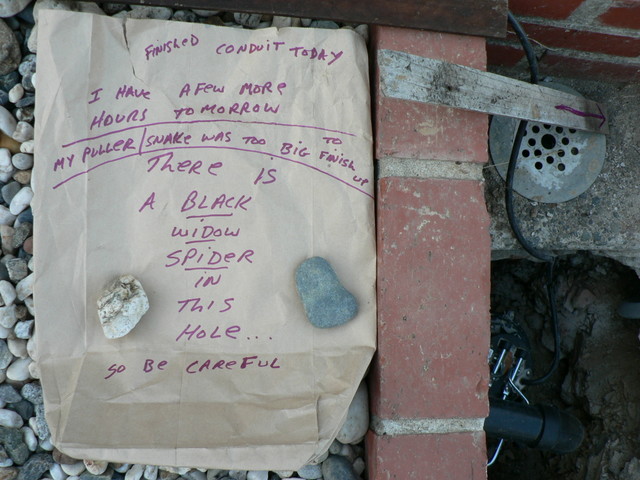 FINISHED CONDUIT TODAY
I HAVE A FEW MORE
HOURS TOMORROW
MY PULLER/SNAKE WAS TOO BIG TO FINISH UP
THERE IS
A BLACK
WIDOW
SPIDER
IN
THIS
HOLE...
SO BE CAREFUL